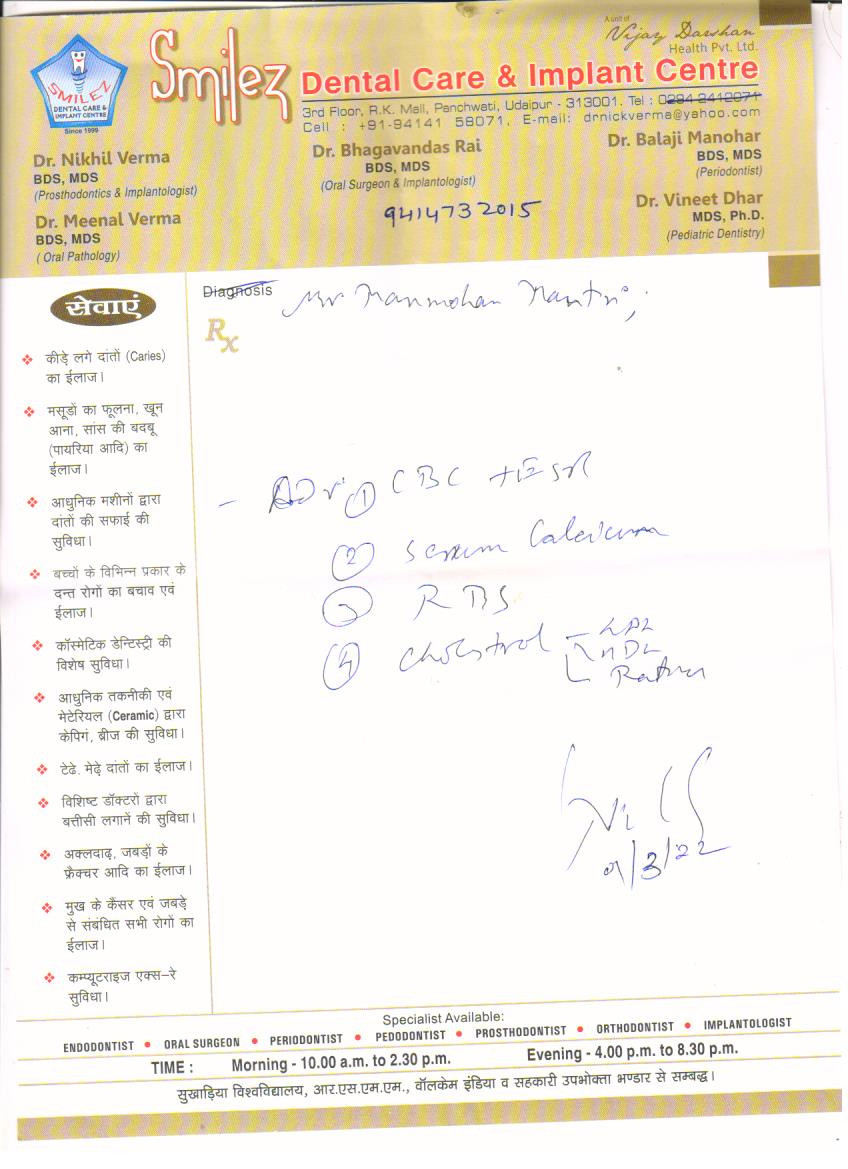 A unit of
Vijay Darshan
Health Pvt. Ltd.
SMILEZ
DENTAL CARE &
IMPLANT CENTRE
Since 1999
Smilez
Dental Care & Implant Centre
3rd Floor, R.K. Mall, Panchwati, Udaipur - 313001. Tel : 0294-2412071
Cell : +91-94141 58071, E-mail: drnickverma@yahoo.com
Dr. Nikhil Verma
BDS, MDS
(Prosthodontics & Implantologist)
Dr. Meenal Verma
BDS, MDS
( Oral Pathology)
Dr. Bhagavandas Rai
BDS, MDS
(Oral Surgeon & Implantologist)
9414732015
Dr. Balaji Manohar
BDS, MDS
(Periodontist)
Dr. Vineet Dhar
MDS, Ph.D.
(Pediatric Dentistry)
सेवाएं
❖ कीड़े लगे दांतों (Caries)
का ईलाज।
❖ मसूडों का फूलना, खून
आना, सांस की बदबू
(पायरिया आदि) का
ईलाज।
❖ आधुनिक मशीनों द्वारा
दांतों की सफाई की
सुविधा।
❖ बच्चों के विभिन्न प्रकार के
दन्त रोगों का बचाव एवं
ईलाज।
❖ कॉस्मेटिक डेन्टिस्ट्री की
विशेष सुविधा।
❖ आधुनिक तकनीकी एवं
मेटेरियल (Ceramic) द्वारा
केपिगं, ब्रीज की सुविधा।
❖ टेढे. मेढ़े दांतों का ईलाज।
❖ विशिष्ट डॉक्टरों द्वारा
बत्तीसी लगानें की सुविधा।
❖ अक्लदाढ़, जबड़ों के
फ्रैक्चर आदि का ईलाज।
❖ मुख के कैंसर एवं जबड़े
से संबंधित सभी रोगों का
ईलाज।
❖ कम्प्यूटराइज एक्स-रे
सुविधा।
Diagnosis Mr Manmohan Mantri,
Rx
- Adv ① CBC + ESR
② Serum Calcium
③ RBS
④ Cholstrol - LDL
HDL
Ratio
/3/22
Specialist Available:
ENDODONTIST • ORAL SURGEON • PERIODONTIST • PEDODONTIST • PROSTHODONTIST • ORTHODONTIST • IMPLANTOLOGIST
TIME : Morning - 10.00 a.m. to 2.30 p.m. Evening - 4.00 p.m. to 8.30 p.m.
सुखाड़िया विश्वविद्यालय, आर.एस.एम.एम., वॉलकेम इंडिया व सहकारी उपभोक्ता भण्डार से सम्बद्ध।